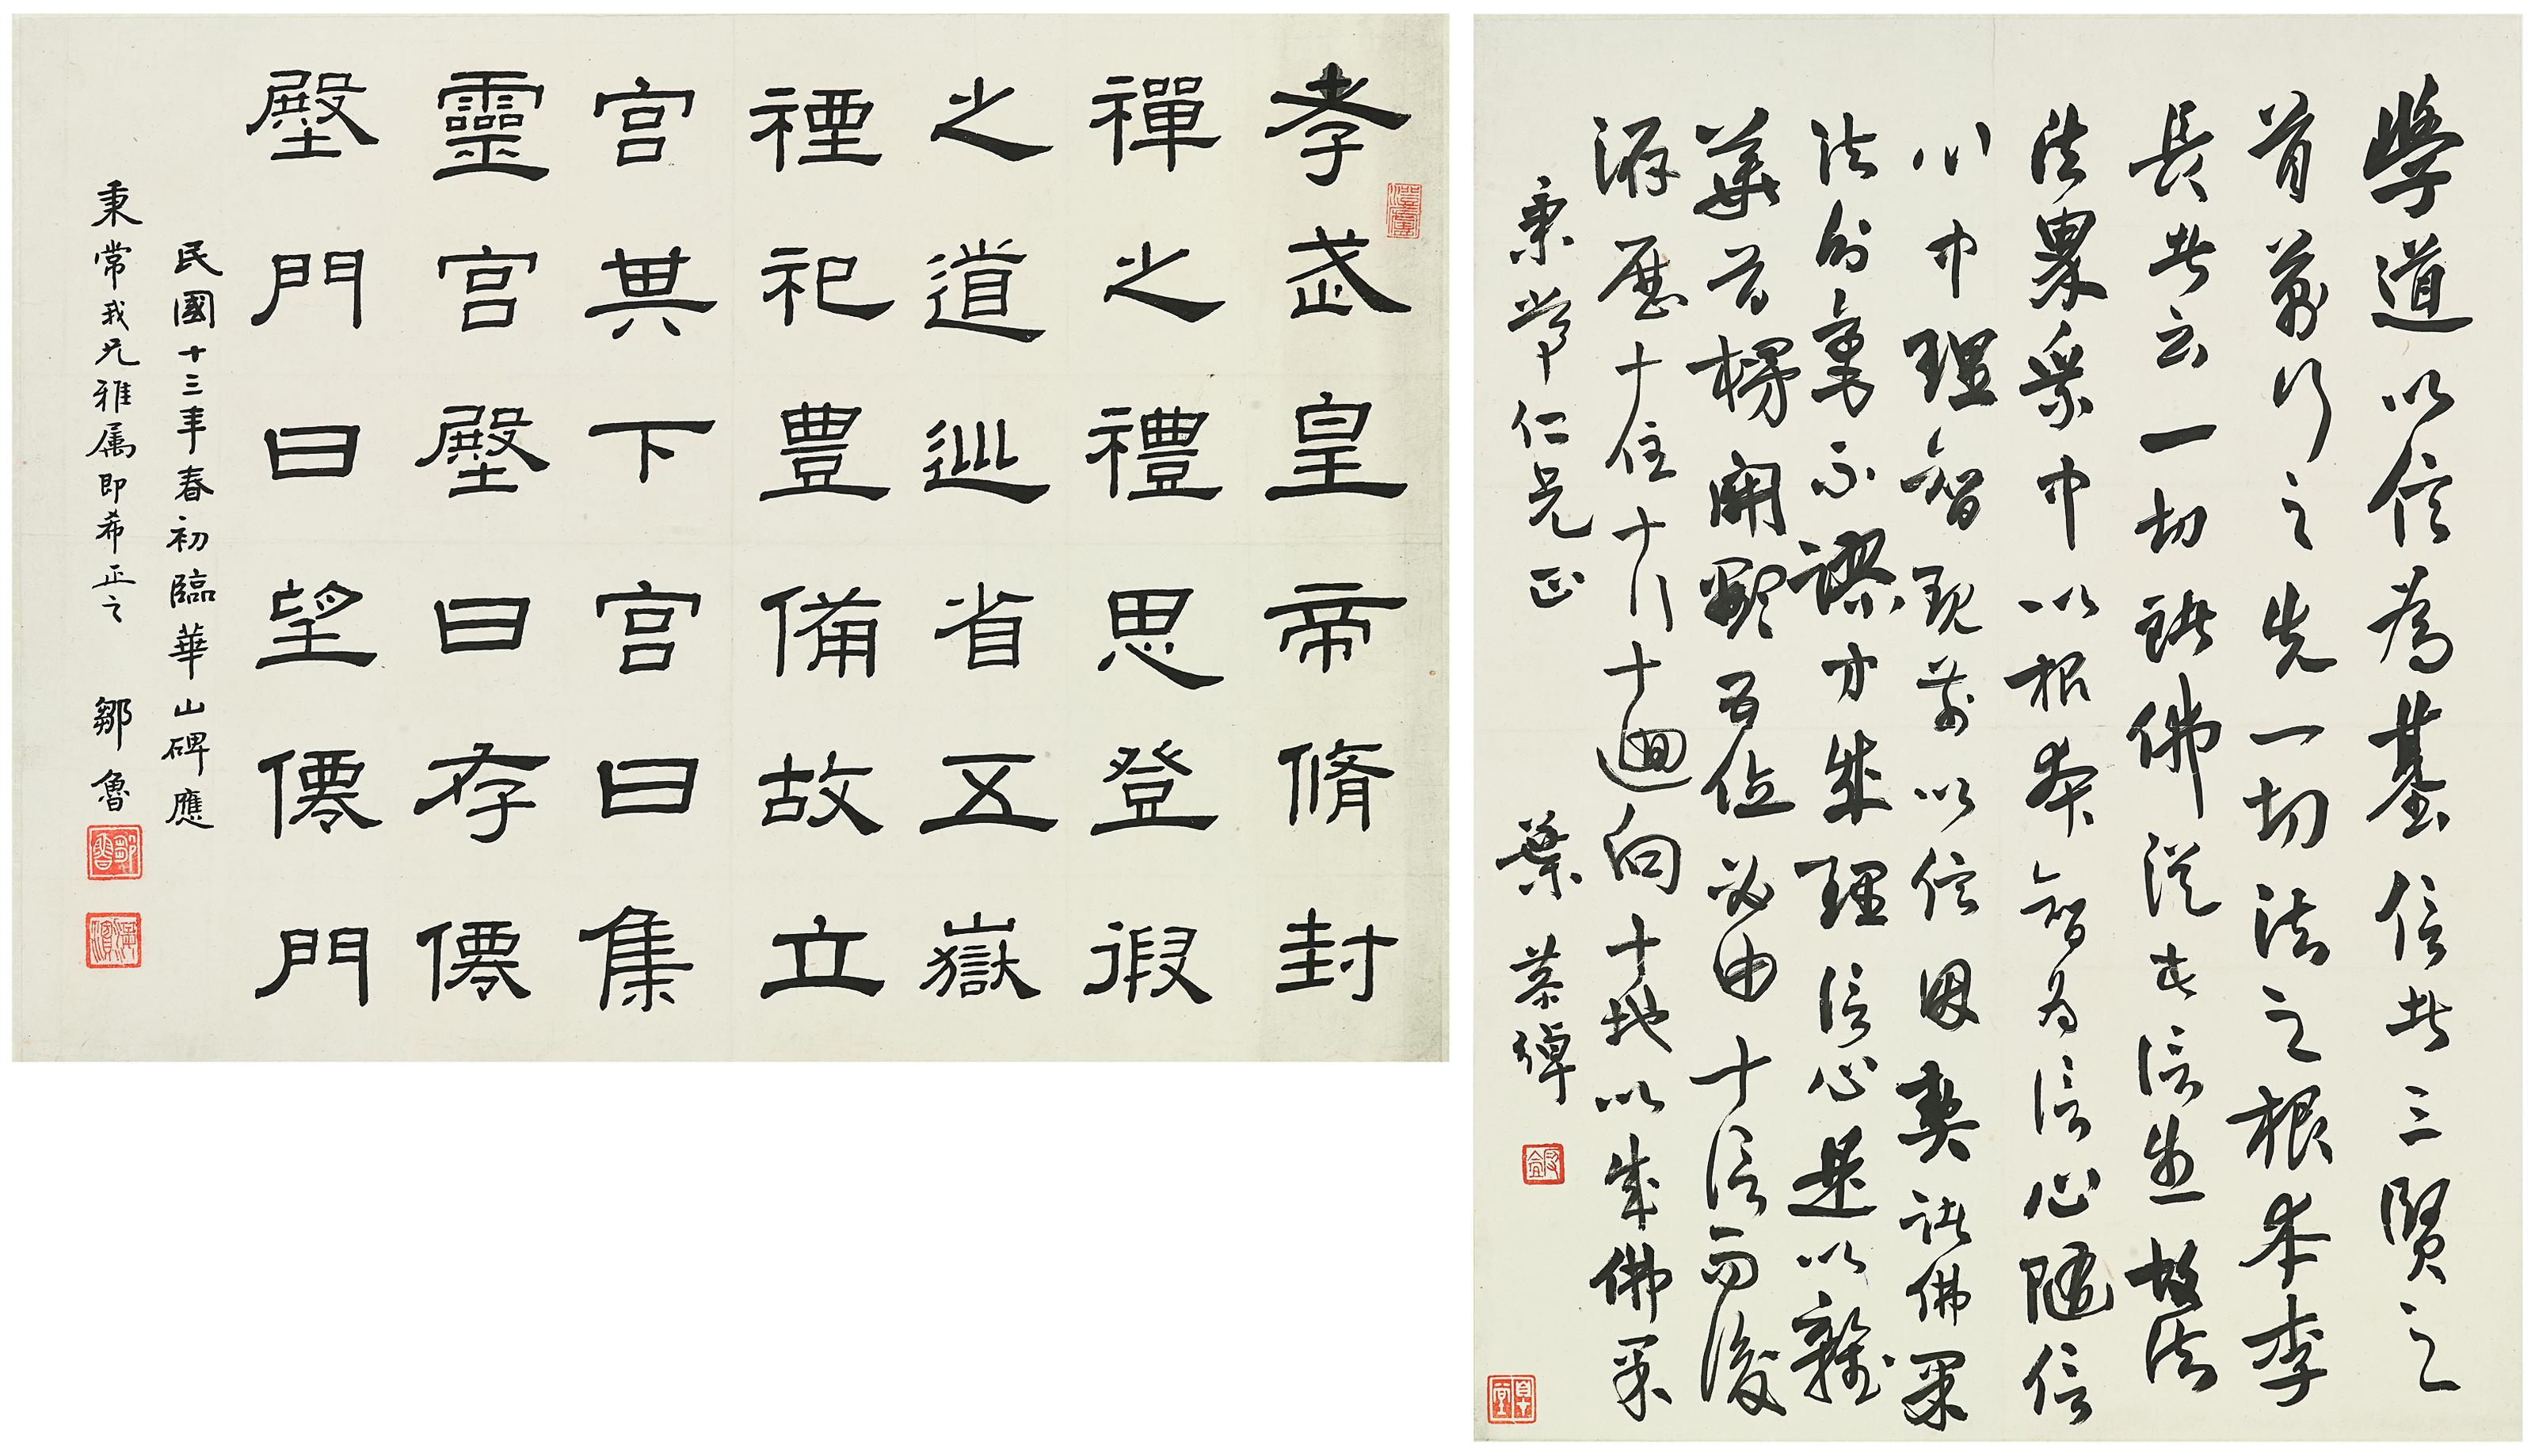 孝武皇帝脩封
禪之禮思登徦
之道巡省五嶽
禋祀豐備故立
宮其下宮曰集
靈宮壂曰存僊
壂門曰望僊門
民國十三年春初臨華山碑應
秉常我兄雅属即希正之 鄒魯
澄廬
鄒魯
海濱
學道以信為基信者三賢之
首萬行之先一切法之根本李
長者云一切諸佛從此信生故法
法界眾中以根本智為信心隨信
心中理智現前以信因契諸佛果
法分毫不謬方成理信心是以雜
華首楞開顯五位必由十信而後
游歷十住十行十迴向十地以成佛果
秉常仁兄正 葉恭綽